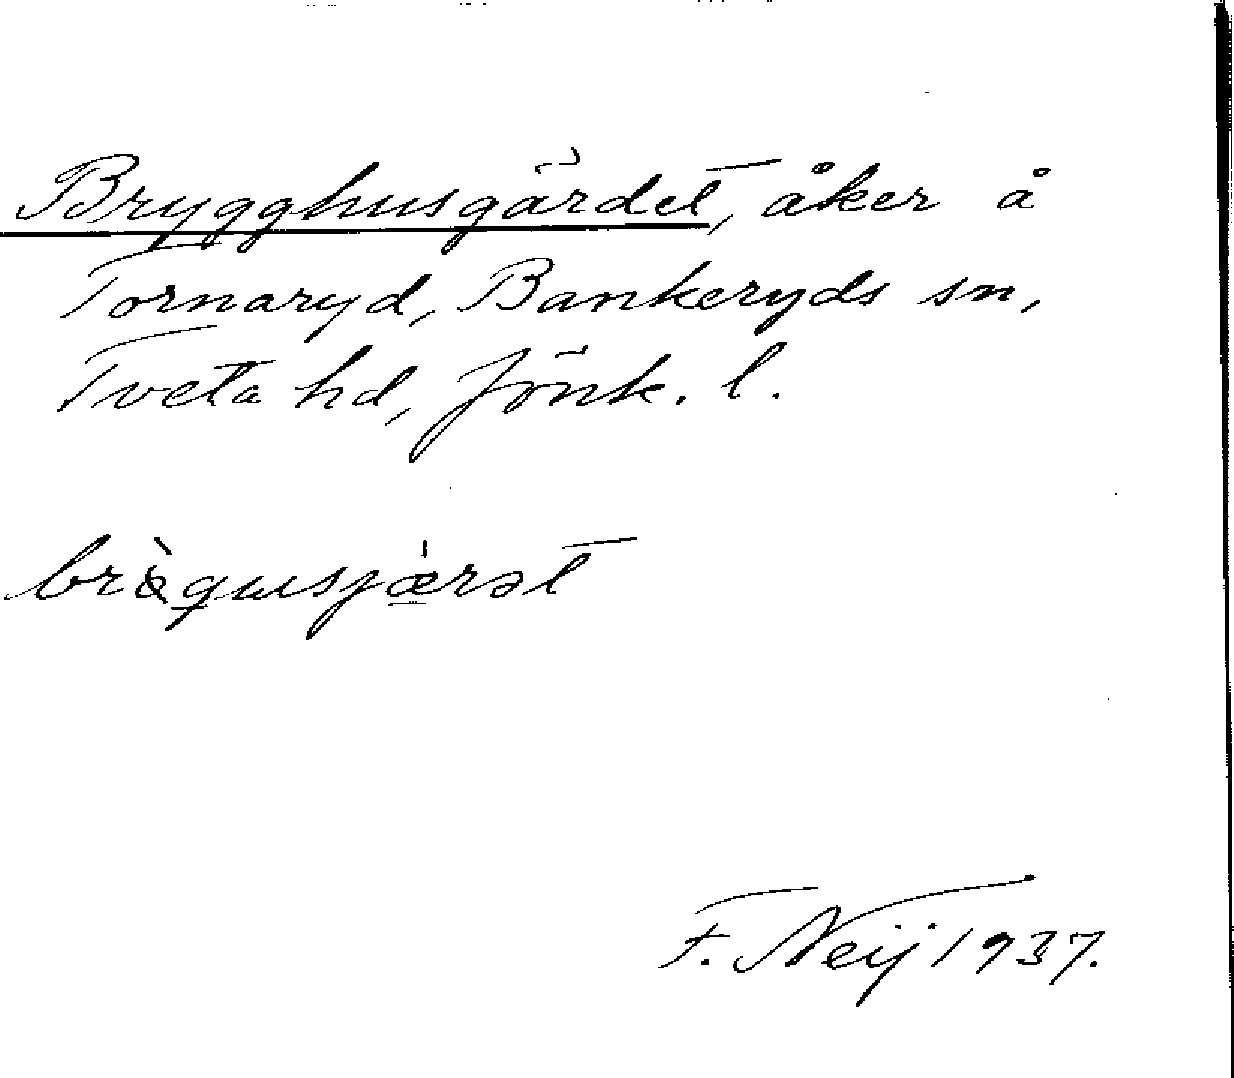 Brygghusgärdet, åker å
Tornaryd, Bankeryds sn,
Tveta hd, Jönk. l.
F. Neij 1937.